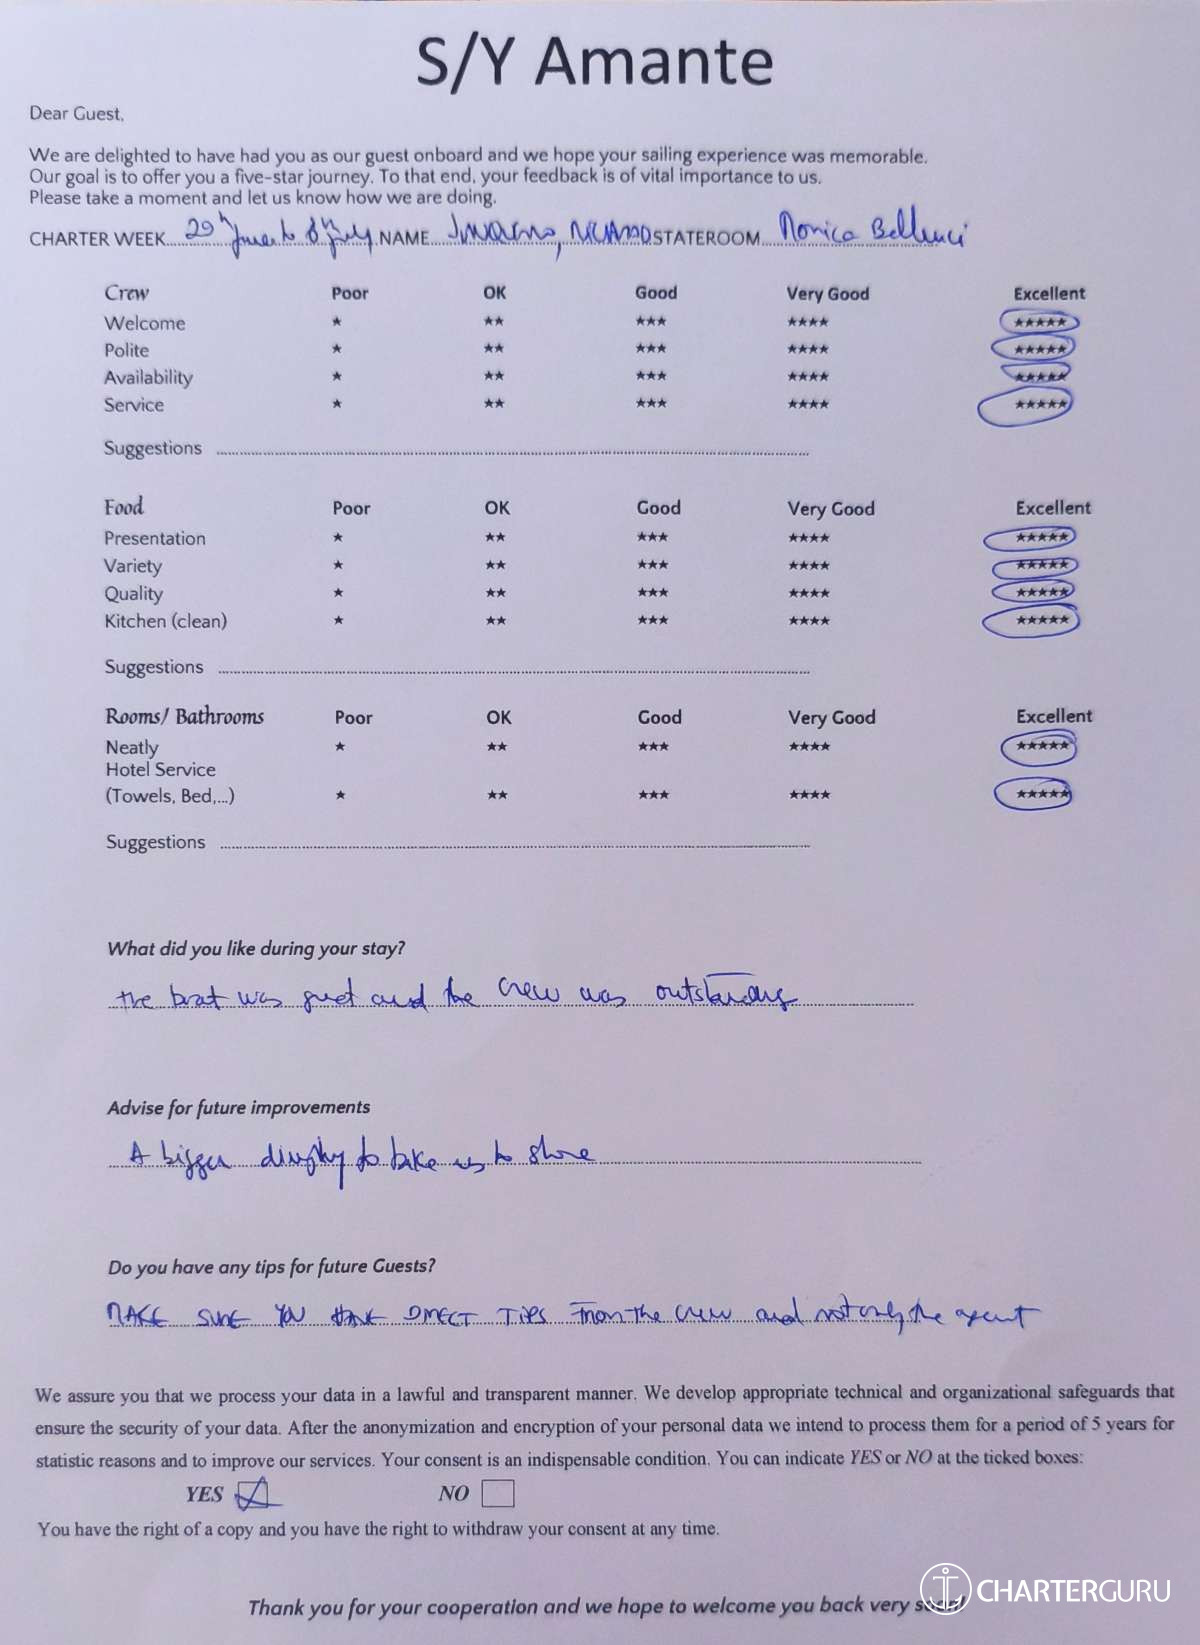 S/Y Amante
Dear Guest,
We are delighted to have had you as our guest onboard and we hope your sailing experience was memorable.
Our goal is to offer you a five-star journey. To that end, your feedback is of vital importance to us.
Please take a moment and let us know how we are doing.
CHARTER WEEK 29th June to 6th July NAME STATEROOM Monica Bellucci
Crew Poor OK Good Very Good Excellent
Welcome ★ ★★ ★★★ ★★★★ ★★★★★
Polite ★ ★★ ★★★ ★★★★ ★★★★★
Availability ★ ★★ ★★★ ★★★★ ★★★★★
Service ★ ★★ ★★★ ★★★★ ★★★★★
Suggestions
Food Poor OK Good Very Good Excellent
Presentation ★ ★★ ★★★ ★★★★ ★★★★★
Variety ★ ★★ ★★★ ★★★★ ★★★★★
Quality ★ ★★ ★★★ ★★★★ ★★★★★
Kitchen (clean) ★ ★★ ★★★ ★★★★ ★★★★★
Suggestions
Rooms/ Bathrooms Poor OK Good Very Good Excellent
Neatly ★ ★★ ★★★ ★★★★ ★★★★★
Hotel Service
(Towels, Bed,...) ★ ★★ ★★★ ★★★★ ★★★★★
Suggestions
What did you like during your stay?
the boat was great and the crew was outstanding
Advise for future improvements
A bigger dinghy to take us to shore
Do you have any tips for future Guests?
MAKE SURE YOU HAVE DIRECT TIPS from the crew and not only the agent
We assure you that we process your data in a lawful and transparent manner. We develop appropriate technical and organizational safeguards that
ensure the security of your data. After the anonymization and encryption of your personal data we intend to process them for a period of 5 years for
statistic reasons and to improve our services. Your consent is an indispensable condition. You can indicate YES or NO at the ticked boxes:
YES NO
You have the right of a copy and you have the right to withdraw your consent at any time.
Thank you for your cooperation and we hope to welcome you back very soon!
CHARTERGURU